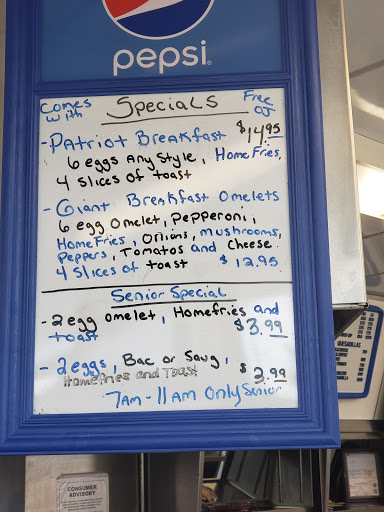 pepsi
comes with
Specials
Free OJ
- Patriot Breakfast $14.95
6 eggs Any style, Home Fries,
4 slices of toast
- Giant Breakfast Omelets
6 egg Omelet, Pepperoni,
Home Fries, Onions, Mushrooms,
Peppers, Tomatos and Cheese
4 slices of toast $12.95
Senior Special
- 2 egg omelet, Homefries and
toast $3.99
- 2 eggs, Bac or Saug,
Homefries and Toast $2.99
7am - 11 am Only Senior
CONSUMER
ADVISORY